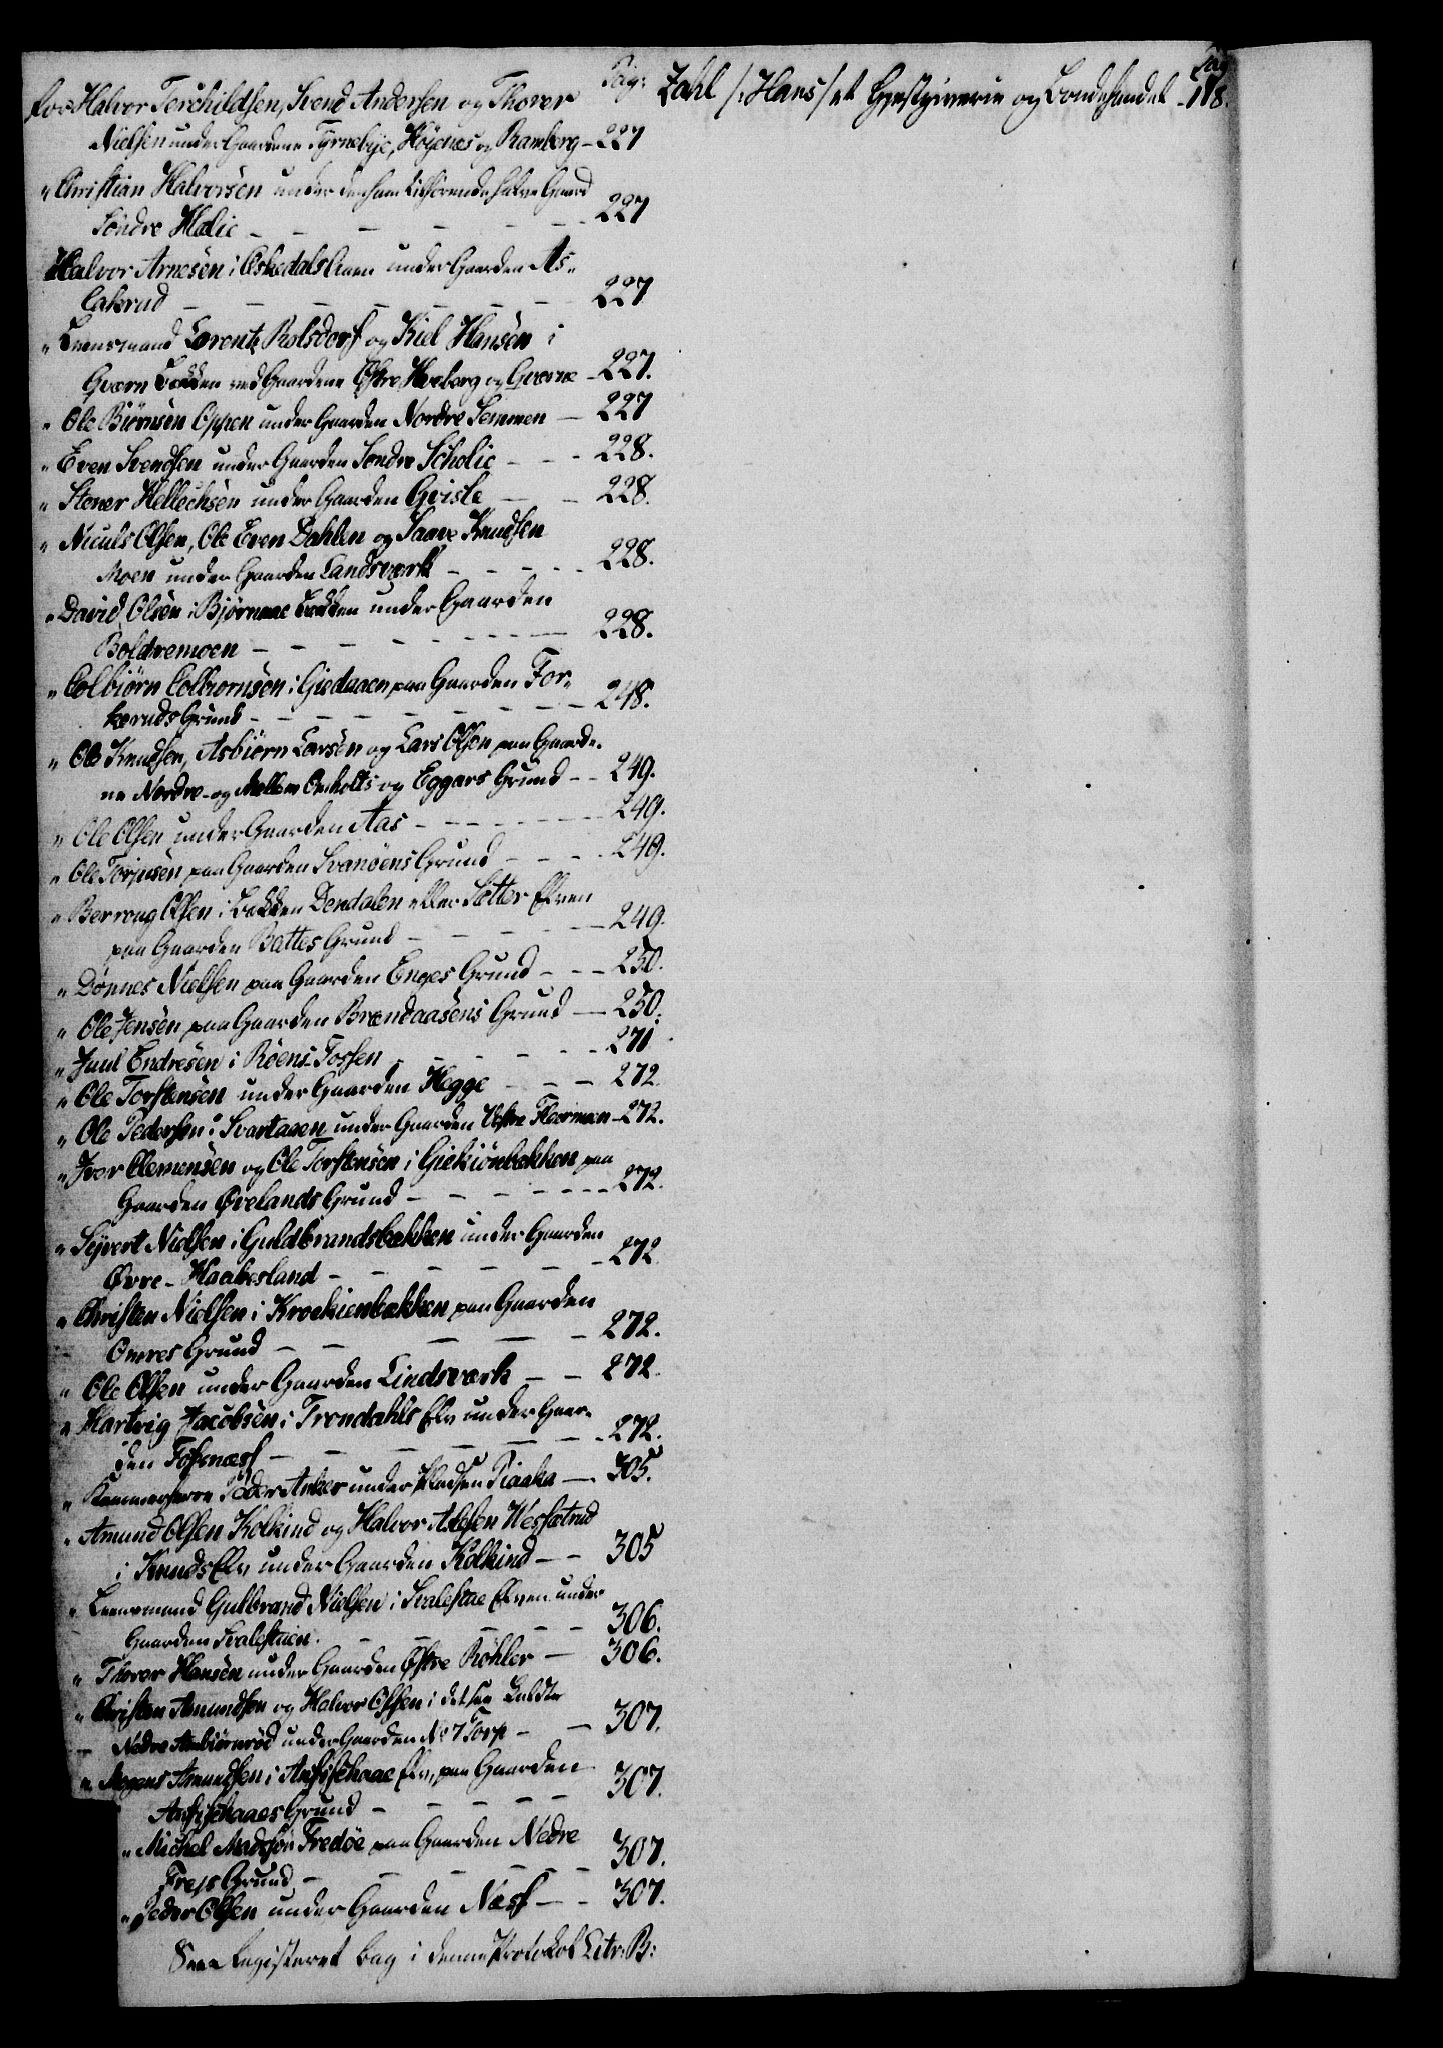 Pag:
for Halvor Torchildsen, Svend Andersen og Thorer
Nielsen under Gaardene Tyrnebye, Höyenes og Ramberg – 227
" Christian Halvorsen under den ham tilhörende halve Gaard
Söndre Holie – – – – – 227
Halvor Arnesen i Askedals Aaen under Gaarden As=
lakrud – – – – – – 227
" Leensmand Lorentz Rolsdorf og Kiel Hansen i
Gværn Bekken ved Gaardene Östre Hvaberg og Gværne – 227.
" Ole Biörnsen Oppen under Gaarden Nordre Semmen – 227
" Even Svendsen under Gaarden Söndre Scholie – – – 228.
" Stener Hellechsen under Gaarden Gvisle – – 228.
" Niculs Olsen, Ole Even Dahlen og Saave Knudsen
Moen under Gaarden Landsværk – – – – – 228.
" David Olsen i Björnaae Bekken under Gaarden
Boldremoen – – – – – – – 228.
" Colbiörn Colbiornsen i Giedaaen paa Gaarden For=
kerudsGrund – – – – – – – 248.
" Ole Knudsen, Asbiörn Larsen og Lars Olsen paa Gaarde=
ne Nordre- og Mellem Omholts og Eggars Grund – – 249.
" Ole Olsen under Gaarden Aas – – – – – – – 249.
" Ole Torjusen paa Gaarden Svanöens Grund – – – – 249.
" Berroug Olsen i Bekken Dendalen eller Sætter Elven
paa Gaarden Battes Grund – – – – – – 249.
" Dönnes Nielsen paa Gaarden Enges Grund – – – 250.
" Ole Jensen paa Gaarden Brændaasens Grund – – 250.
" Juul Endresen i Röens-Fossen – – – – – – 271
" Ole Torstensen under Gaarden Hegge – – – 272.
" Ole Pedersen i Svartaaen under Gaarden Vestre Fleerman – 272.
" Iver Clemensen og Ole Torstensen i Giekiönbækken paa
Gaarden Övelands Grund – – – – – – – 272.
" Sejvert Nielsen i Guldbrandsbækken under Gaarden
Övre- Haabesland – – – – – – 272.
" Christen Nielsen i Kroekienbækken paa Gaarden
Omres Grund – – – – – 272.
" Ole Olsen under Gaarden Lindsværk – – 272.
" Hartvig Jacobsen i Trondahls Elv under Gaar=
den Fossnæss – – – – – – 272.
" Kammerherre Peder Anker under Pladsen Piaaka – 305.
" Amund Olsen Kolkind og Halvor Alfsen Wessætrud
i Knuds Elv under Gaarden Kolkind – – 305
" Leensmand Gulbrand Nielsen i Svalestae Elven under
Gaarden Svalestuen. – – – – – 306.
" Thorer Hansen under Gaarden Östre Röhler – 306.
" Christen Amundsen og Halvor Olsen i det saa kaldte
– Nedre Ambiörnröd under Gaarden No 7 Torp – – 307.
" Mogens Amundsen i Elv, paa Gaarden
Grund – – – – – 307.
" Michel Madsen Fredöe paa Gaarden Nedre
Frejs Grund – – – – – – 307.
" Peder Olsen under Gaarden Næss – – 307.
See Registeret bag i denne Protokol Litr: B:
Pag
Zahl /: Hans / et Giestgiverie og Bondehandel – 118.